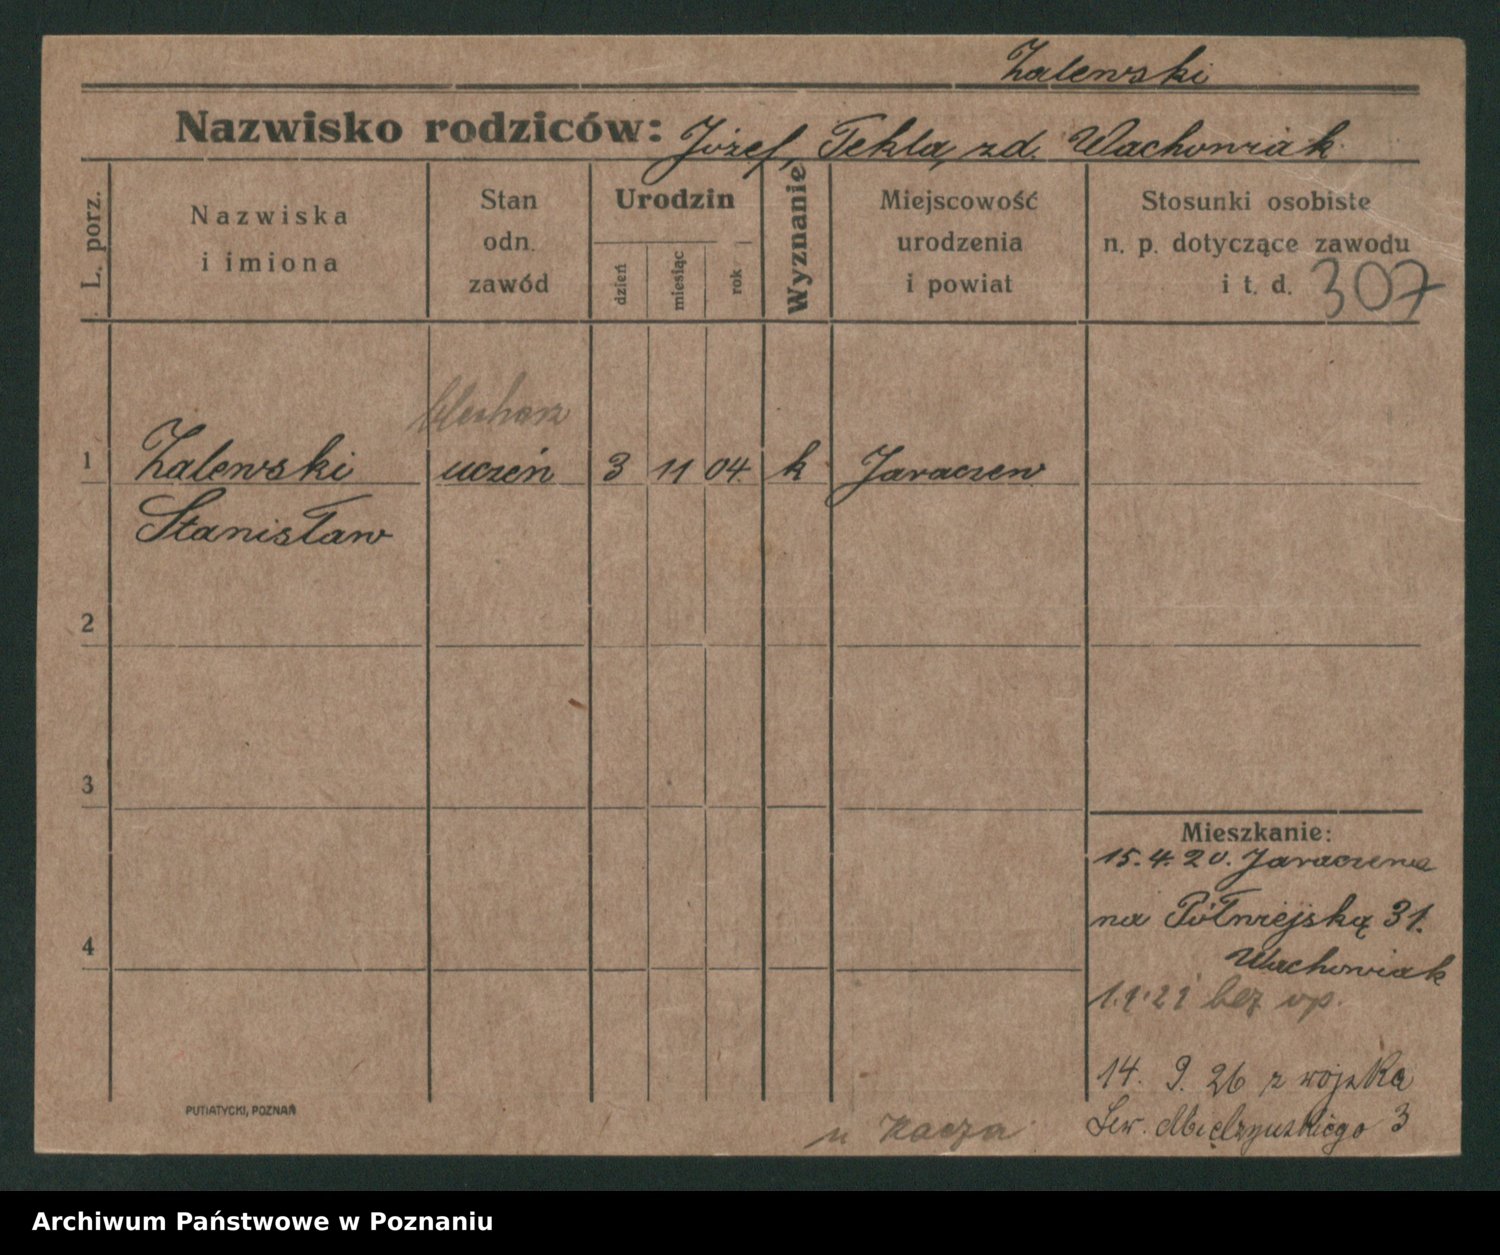 Zalewski
Nazwisko rodziców: Józef, Tekla, zd. Wachowiak
L. porz.
Nazwiska
i imiona
Stan
odn.
zawód
Urodzin
dzień
miesiąc
rok
Wyznanie
Miejscowość
urodzenia
i powiat
Stosunki osobiste
n. p. dotyczące zawodu
i t. d. 307
blacharz
1 Zalewski uczeń 3 11 04. k Jaraczew
Stanisław
2
3
4
Mieszkanie:
15.4.20. Jaraczewa
na Półwiejską 31.
Wachowiak
bez op.
14. 9. 26 z wojska
Sew. Mielżyńskiego 3
u Kacza
PUTIATYCKI, POZNAŃ
Archiwum Państwowe w Poznaniu